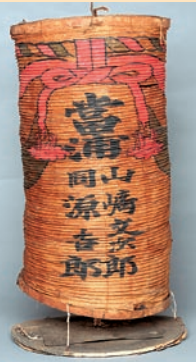 當浦
山嶋又次郎
同源吉郎